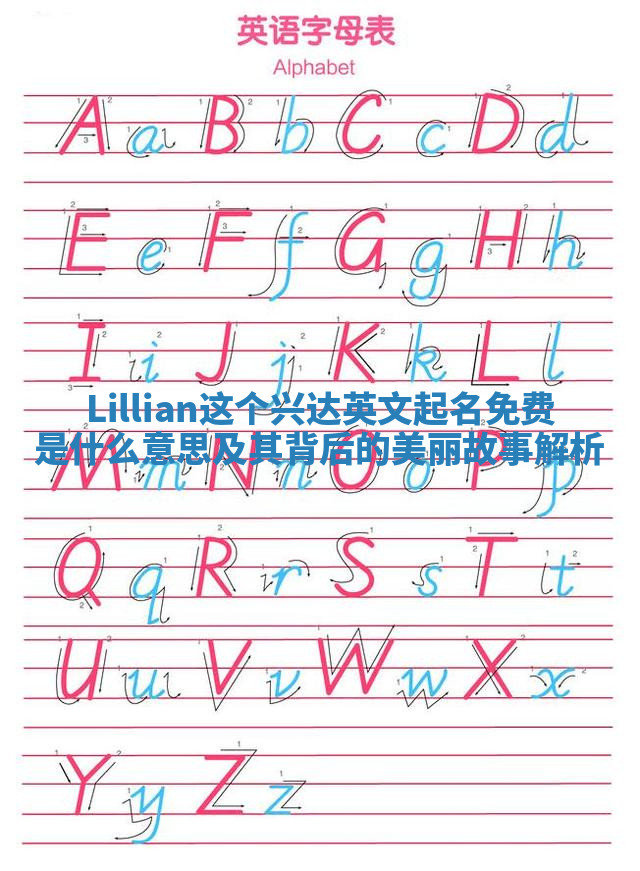 英语字母表
Alphabet
A a B b C c D d
E e F f G g H h
I i J j K k L l
Lillian这个兴达英文起名免费
是什么意思及其背后的美丽故事解析
M m N n O o P p
Q q R r S s T t
U u V v W w X x
Y y Z z